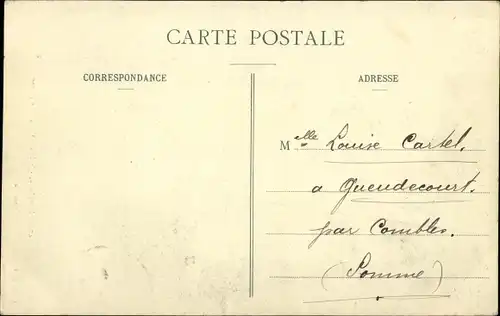 CARTE POSTALE
CORRESPONDANCE
ADRESSE
Melle Louise Cartel.
a Gueudecourt.
par Combles.
(Somme)